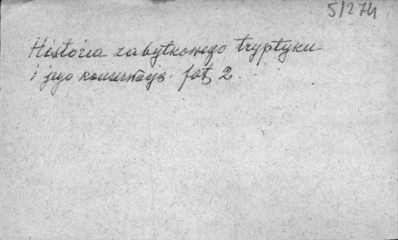 5/274
Historia zabytkowego tryptyku
i jego konserwacja. fot. 2.